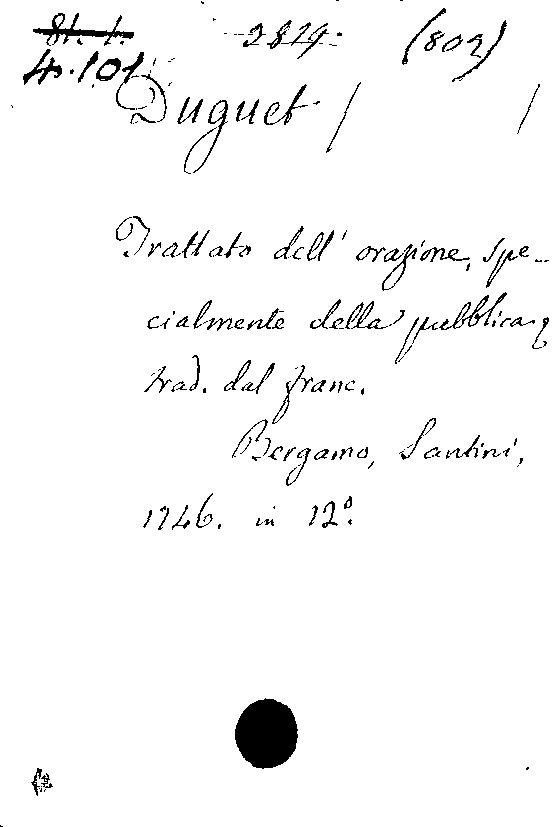 81. 1. 2829. (803)
4. 101.
Duguet / /
Trattato dell' orazione, spe-
cialmente della pubblica,
trad. dal franc.
Bergamo, Santini,
1746. in 12º.